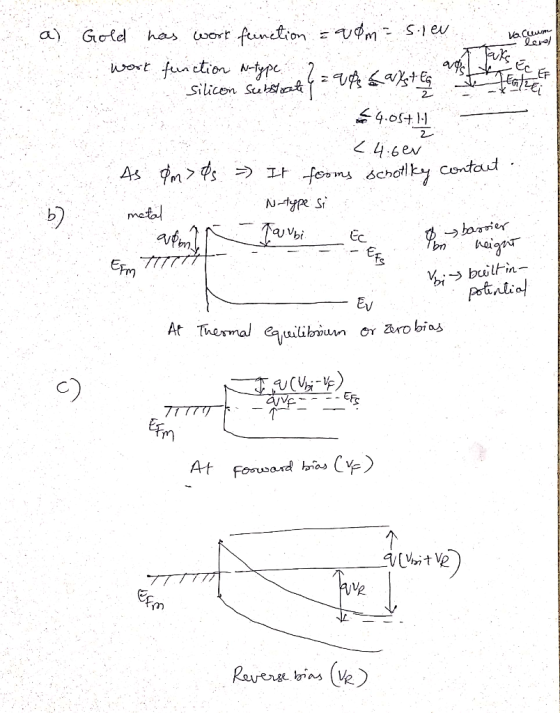 a) Gold has work function = qϕm = 5.1 eV
Work function N-type
Silicon Substrate } = qϕs ≤ qχs + EG/2
≤ 4.05 + 1.1/2
< 4.6 eV
vacuum level
qϕs
qχs
EC
EF
EG/2
Ei
As ϕm > ϕs ⇒ It forms schottky contact.
b)
metal
N-type Si
qϕbn
qVbi
EC
EFs
EFm
EV
ϕbn → barrier height
Vbi → built in-potential
At Thermal equilibrium or zero bias
c)
q(Vbi-VF)
qVF
EFs
EFm
At Forward bias (VF)
q(Vbi+VR)
qVR
EFm
Reverse bias (VR)